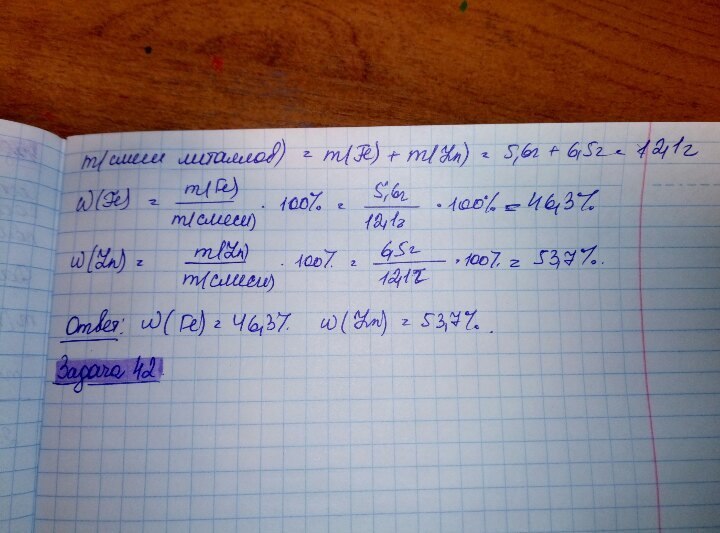 m(смеси металлов) = m(Fe) + m(Zn) = 5,6г + 6,5г = 12,1г
w(Fe) = m(Fe)/m(смеси) · 100% = 5,6г/12,1г · 100% = 46,3%
w(Zn) = m(Zn)/m(смеси) · 100% = 6,5г/12,1г · 100% = 53,7%.
Ответ: w(Fe) = 46,3%. w(Zn) = 53,7%.
Задача 42